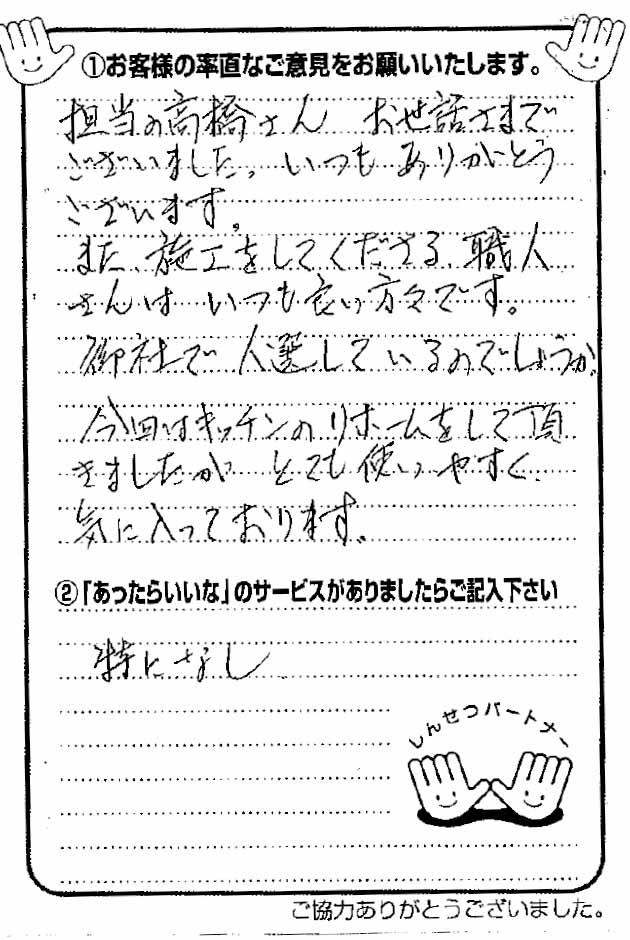 ①お客様の率直なご意見をお願いいたします。
担当の高橋さん お世話さまで
ございました。いつもありがとう
ございます。
また、施工をしてくださる、職人
さんは いつも良い方々です。
御社で 人選しているのでしょうか。
今回はキッチンのリホームをして頂
きましたが とても使いやすく、
気に入っております。
②「あったらいいな」のサービスがありましたらご記入下さい
特になし
しんせつパートナー
ご協力ありがとうございました。